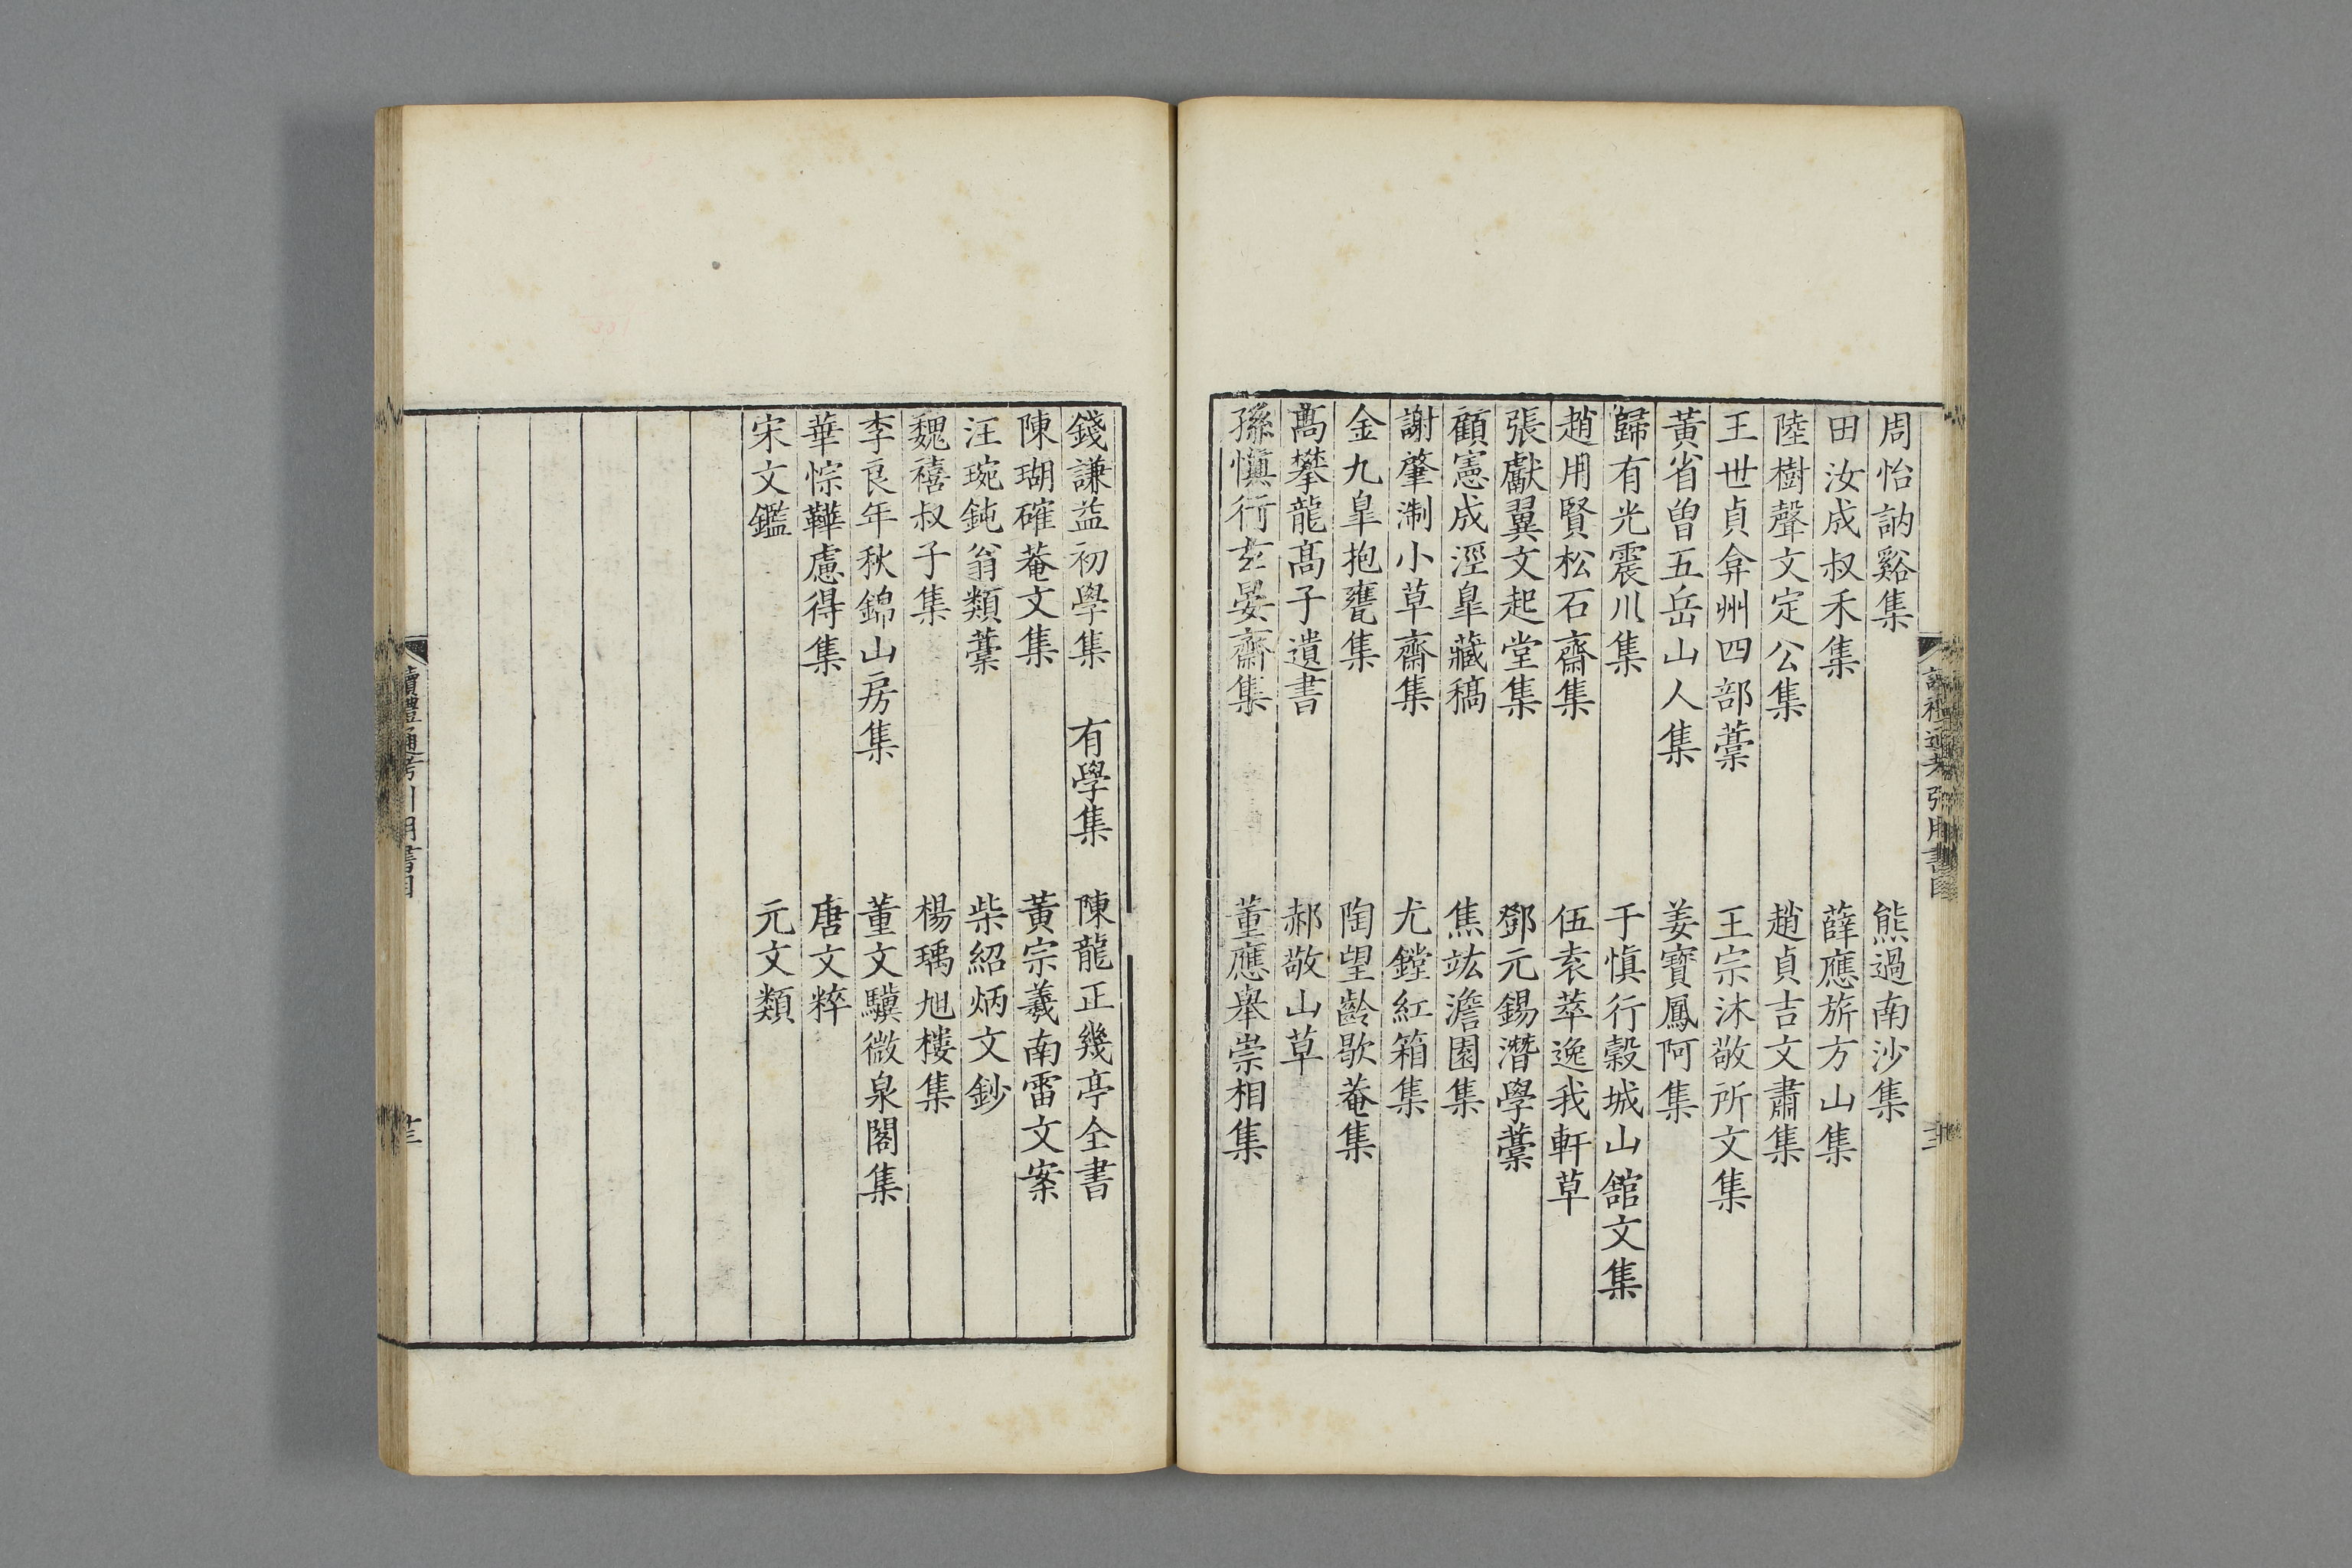 周怡訥谿集 熊過南沙集
田汝成叔禾集 薛應旂方山集
陸樹聲文定公集 趙貞吉文肅集
王世貞弇州四部藁 王宗沐敬所文集
黃省曾五岳山人集 姜寶鳳阿集
歸有光震川集 于慎行穀城山館文集
趙用賢松石齋集 伍袁萃逸我軒草
張獻翼文起堂集 鄧元錫潛學藁
顧憲成涇皐藏稿 焦竑澹園集
謝肇淛小草齋集 尤鏜紅箱集
金九皐抱甕集 陶望齡歇菴集
髙攀龍髙子遺書 郝敬山草
孫慎行玄晏齋集 董應舉崇相集
錢謙益初學集 有學集 陳龍正幾亭全書
陳瑚確菴文集 黃宗羲南雷文案
汪琬鈍翁類藁 柴紹炳文鈔
魏禧叔子集 楊瑀旭樓集
李良年秋錦山房集 董文驥微泉閣集
華悰韡慮得集 唐文粹
宋文鑑 元文類
讀禮通考引用書目